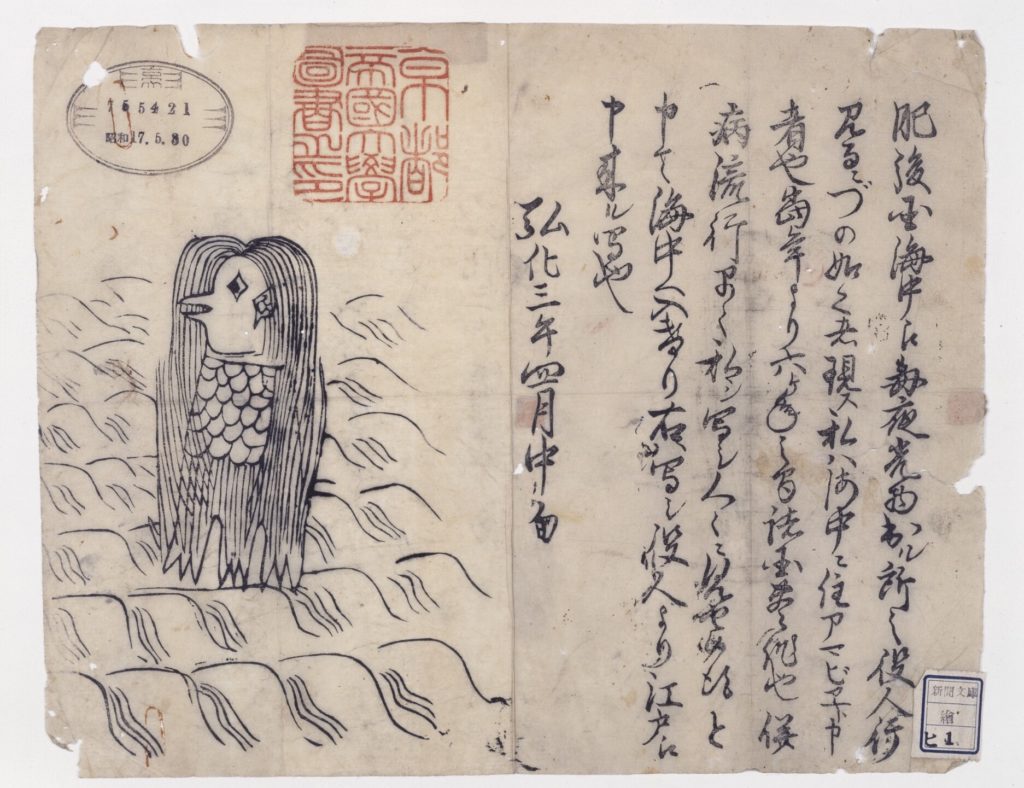 肥後国海中江毎夜光物出ル所之役人行
見るニづの如く者現ス私ハ海中ニ住アマビヱト申
者也當年より六ヶ年之間諸国豊作也併
病流行早々私ヲ写シ人々ニ見セ候得と
申て海中へ入けり右写シ役人より江戸江
申来ル写也
弘化三年四月中旬
京都
帝國大學
圖書之印
昭和17.5.30
新聞文庫
繪
ヒ 1